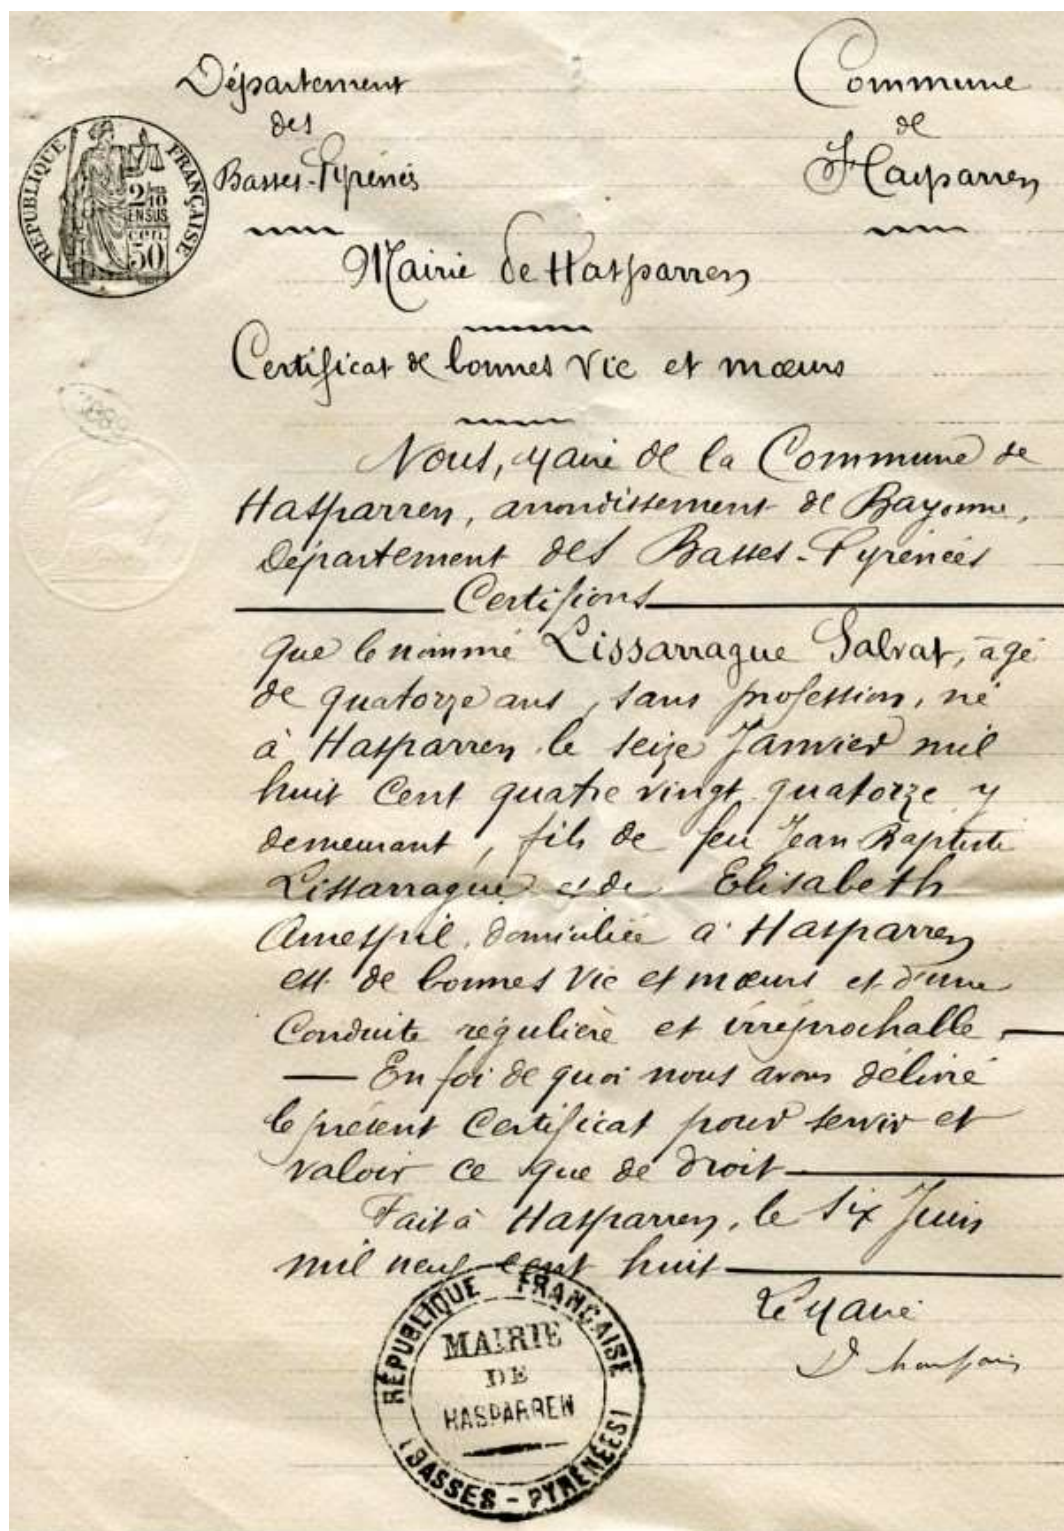 Département
des
Basses-Pyrénées
Commune
de
Hasparren
RÉPUBLIQUE FRANÇAISE
2/10
EN SUS
50
Mairie de Hasparren
Certificat de bonnes Vie et mœurs
Nous, Maire de la Commune de
Hasparren, arrondissement de Bayonne,
Département des Basses-Pyrénées
Certifions
que le nommé Lissarrague Salvat, âgé
de quatorze ans, sans profession, né
à Hasparren le seize Janvier mil
huit Cent quatre vingt quatorze y
demeurant, fils de feu Jean Baptiste
Lissarrague et de Elisabeth
Amespil, domiciliée à Hasparren
est de bonnes Vie et mœurs et d'une
Conduite régulière et irréprochable
En foi de quoi nous avons délivré
le présent Certificat pour servir et
valoir ce que de droit
Fait à Hasparren, le six Juin
mil neuf cent huit
Le Maire
RÉPUBLIQUE FRANÇAISE
MAIRIE
DE
HASPARREN
(BASSES-PYRÉNÉES)